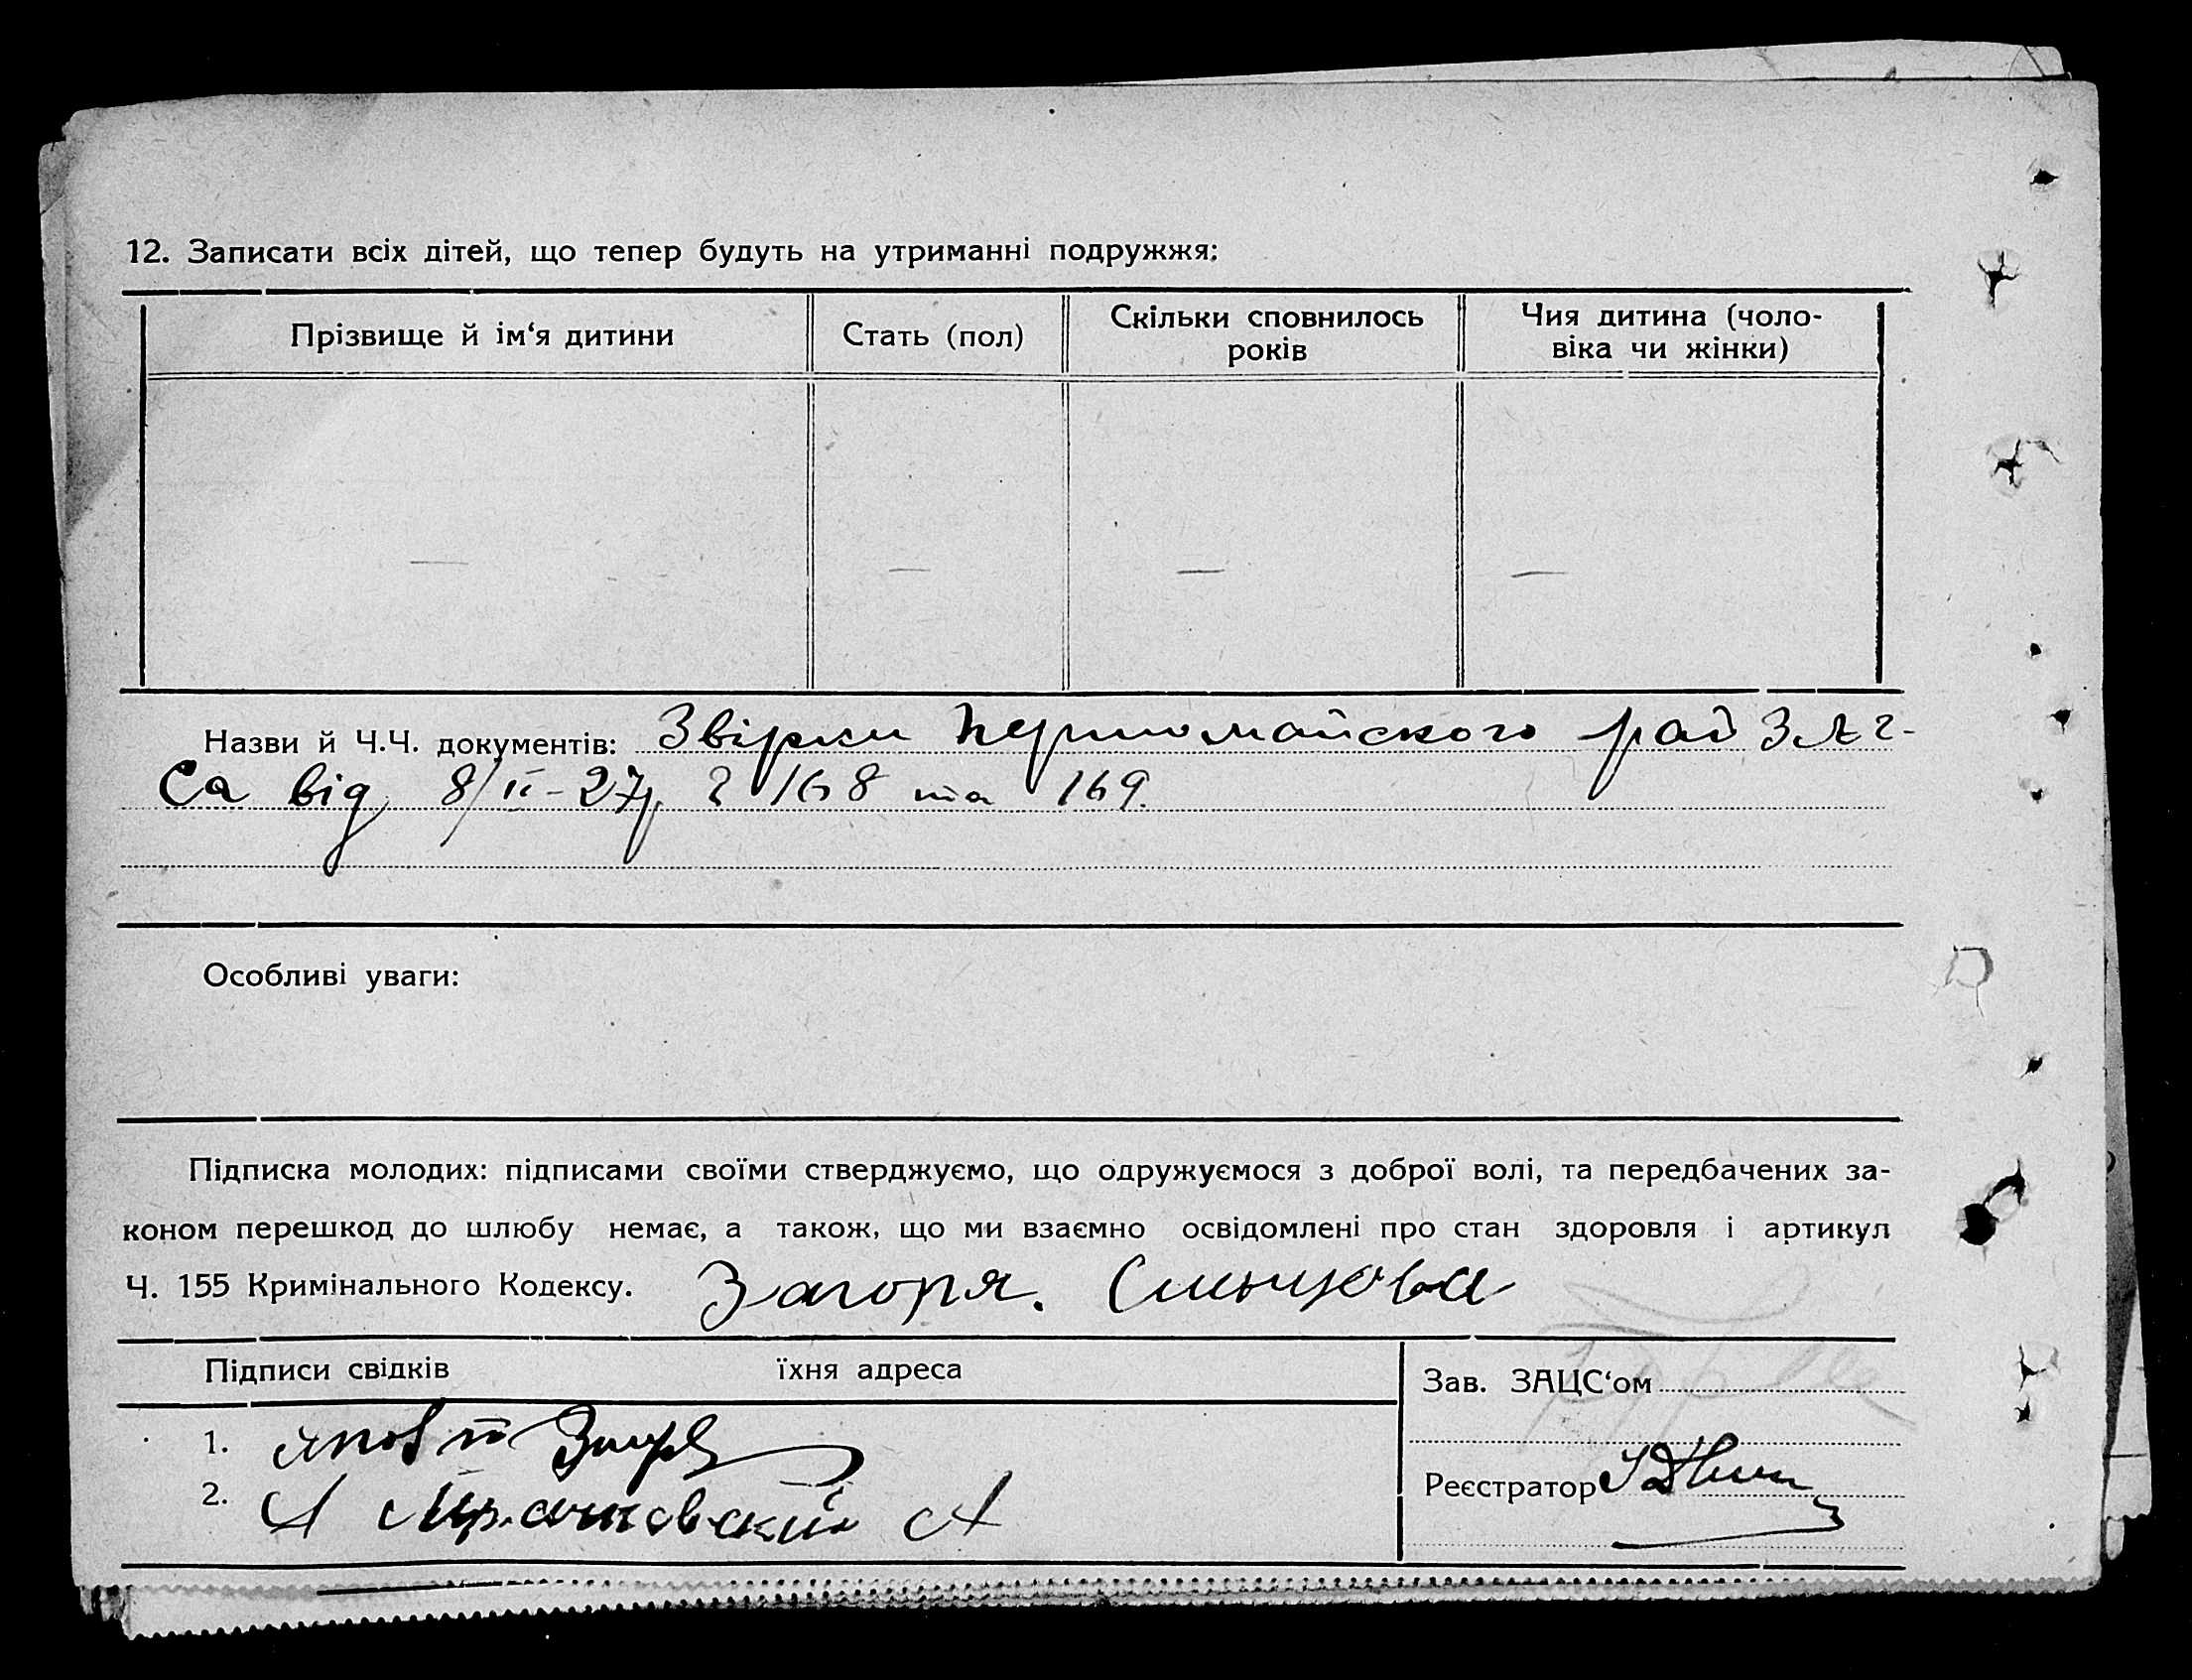 12. Записати всіх дітей, що тепер будуть на утриманні подружжя:
Прізвище й ім‘я дитини
Стать (пол)
Скільки сповнилось
років
Чия дитина (чоло-
віка чи жінки)
— — — —
Назви й Ч.Ч. документів: Звірки Першомайского рай ЗАГ-
Са від 8/II-27р 168 та 169.
Особливі уваги:
Підписка молодих: підписами своїми стверджуємо, що одружуємося з доброї волі, та передбачених за-
коном перешкод до шлюбу немає, а також, що ми взаємно освідомлені про стан здоровля і артикул
Ч. 155 Кримінального Кодексу. Загоря.
Підписи свідків їхня адреса
Зав. ЗАЦС‘ом
1.
2. А А
Реєстратор